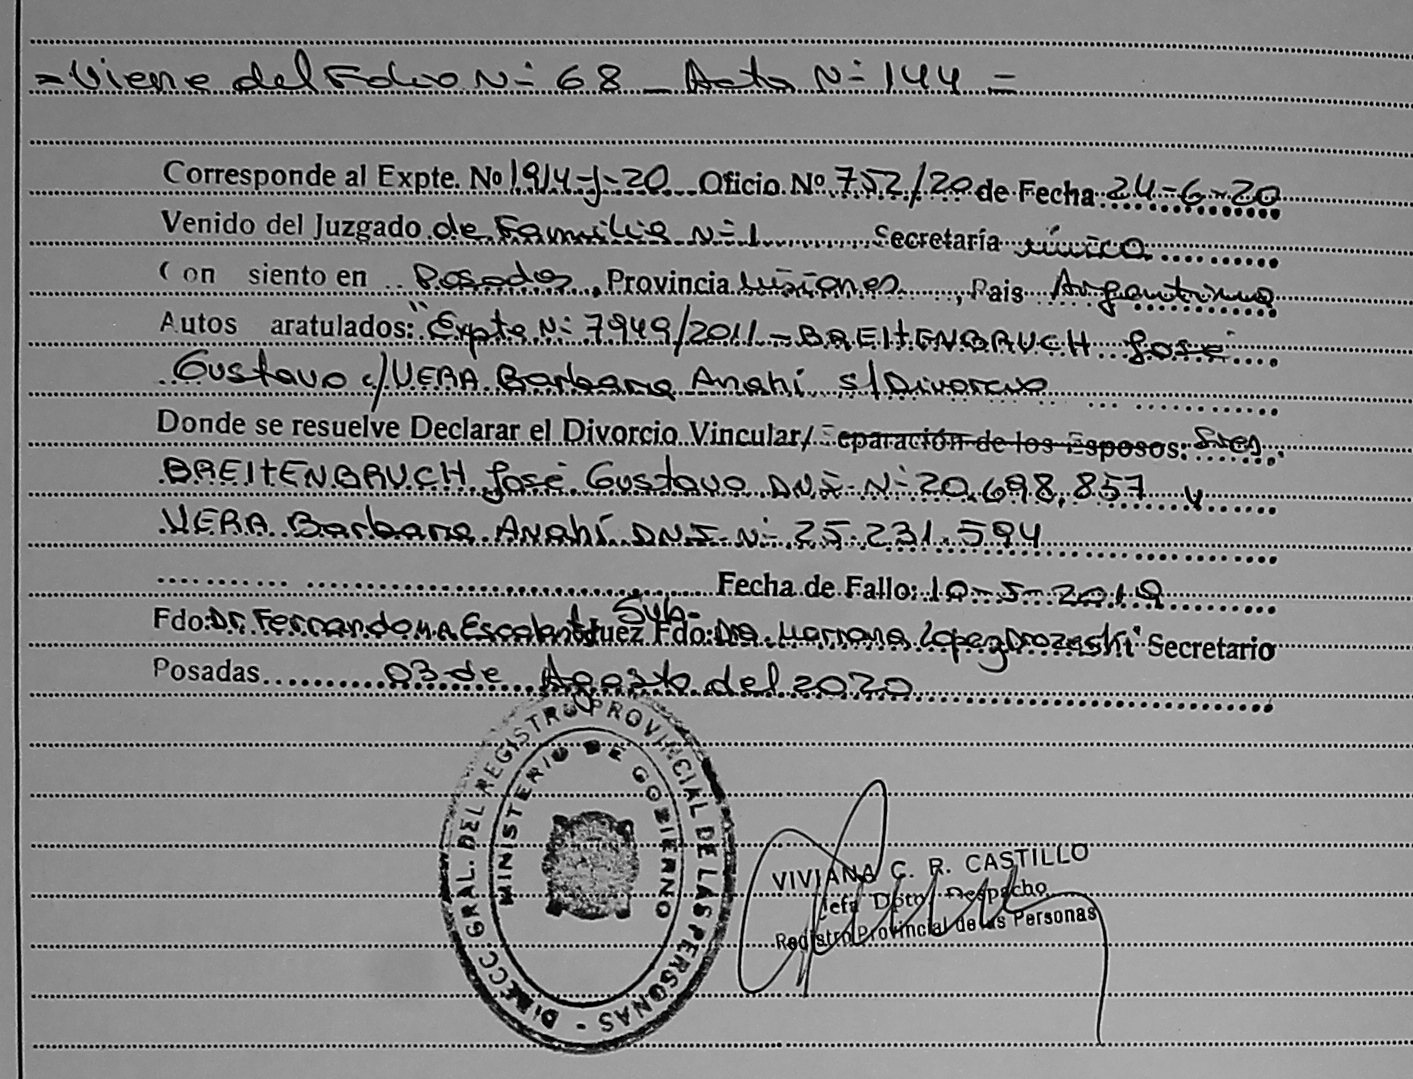 = Viene del Folio Nº 68 _ Acta Nº 144 =
Corresponde al Expte. Nº 1914-J-20 Oficio Nº 752/20 de Fecha: 24-6-20
Venido del Juzgado de Familia Nº 1 Secretaría única
Con siento en Posadas, Provincia Misiones, Pais Argentina
Autos aratulados: "Expte Nº 7949/2011 - BREITENBAUCH José
Gustavo c/ VERA Barbara Anahí s/ Divorcio
Donde se resuelve Declarar el Divorcio Vincular/ Separación de los Esposos: Sres.
BREITENBAUCH José Gustavo DNI Nº 20.698.857 y
VERA Barbara Anahí DNI Nº 25.231.594
Fecha de Fallo: 10-5-2019
Sub-
Fdo: Dr. Fernando M.A Escalante Juez Fdo: Dra. Mariana Lopez Drozeski Secretario
Posadas 03 de Agosto del 2020
DIRECC. GRAL. DEL REGISTRO PROVINCIAL DE LAS PERSONAS -
MINISTERIO DE GOBIERNO
VIVIANA C. R. CASTILLO
Jefa Dpto. Despacho
Registro Provincial de las Personas